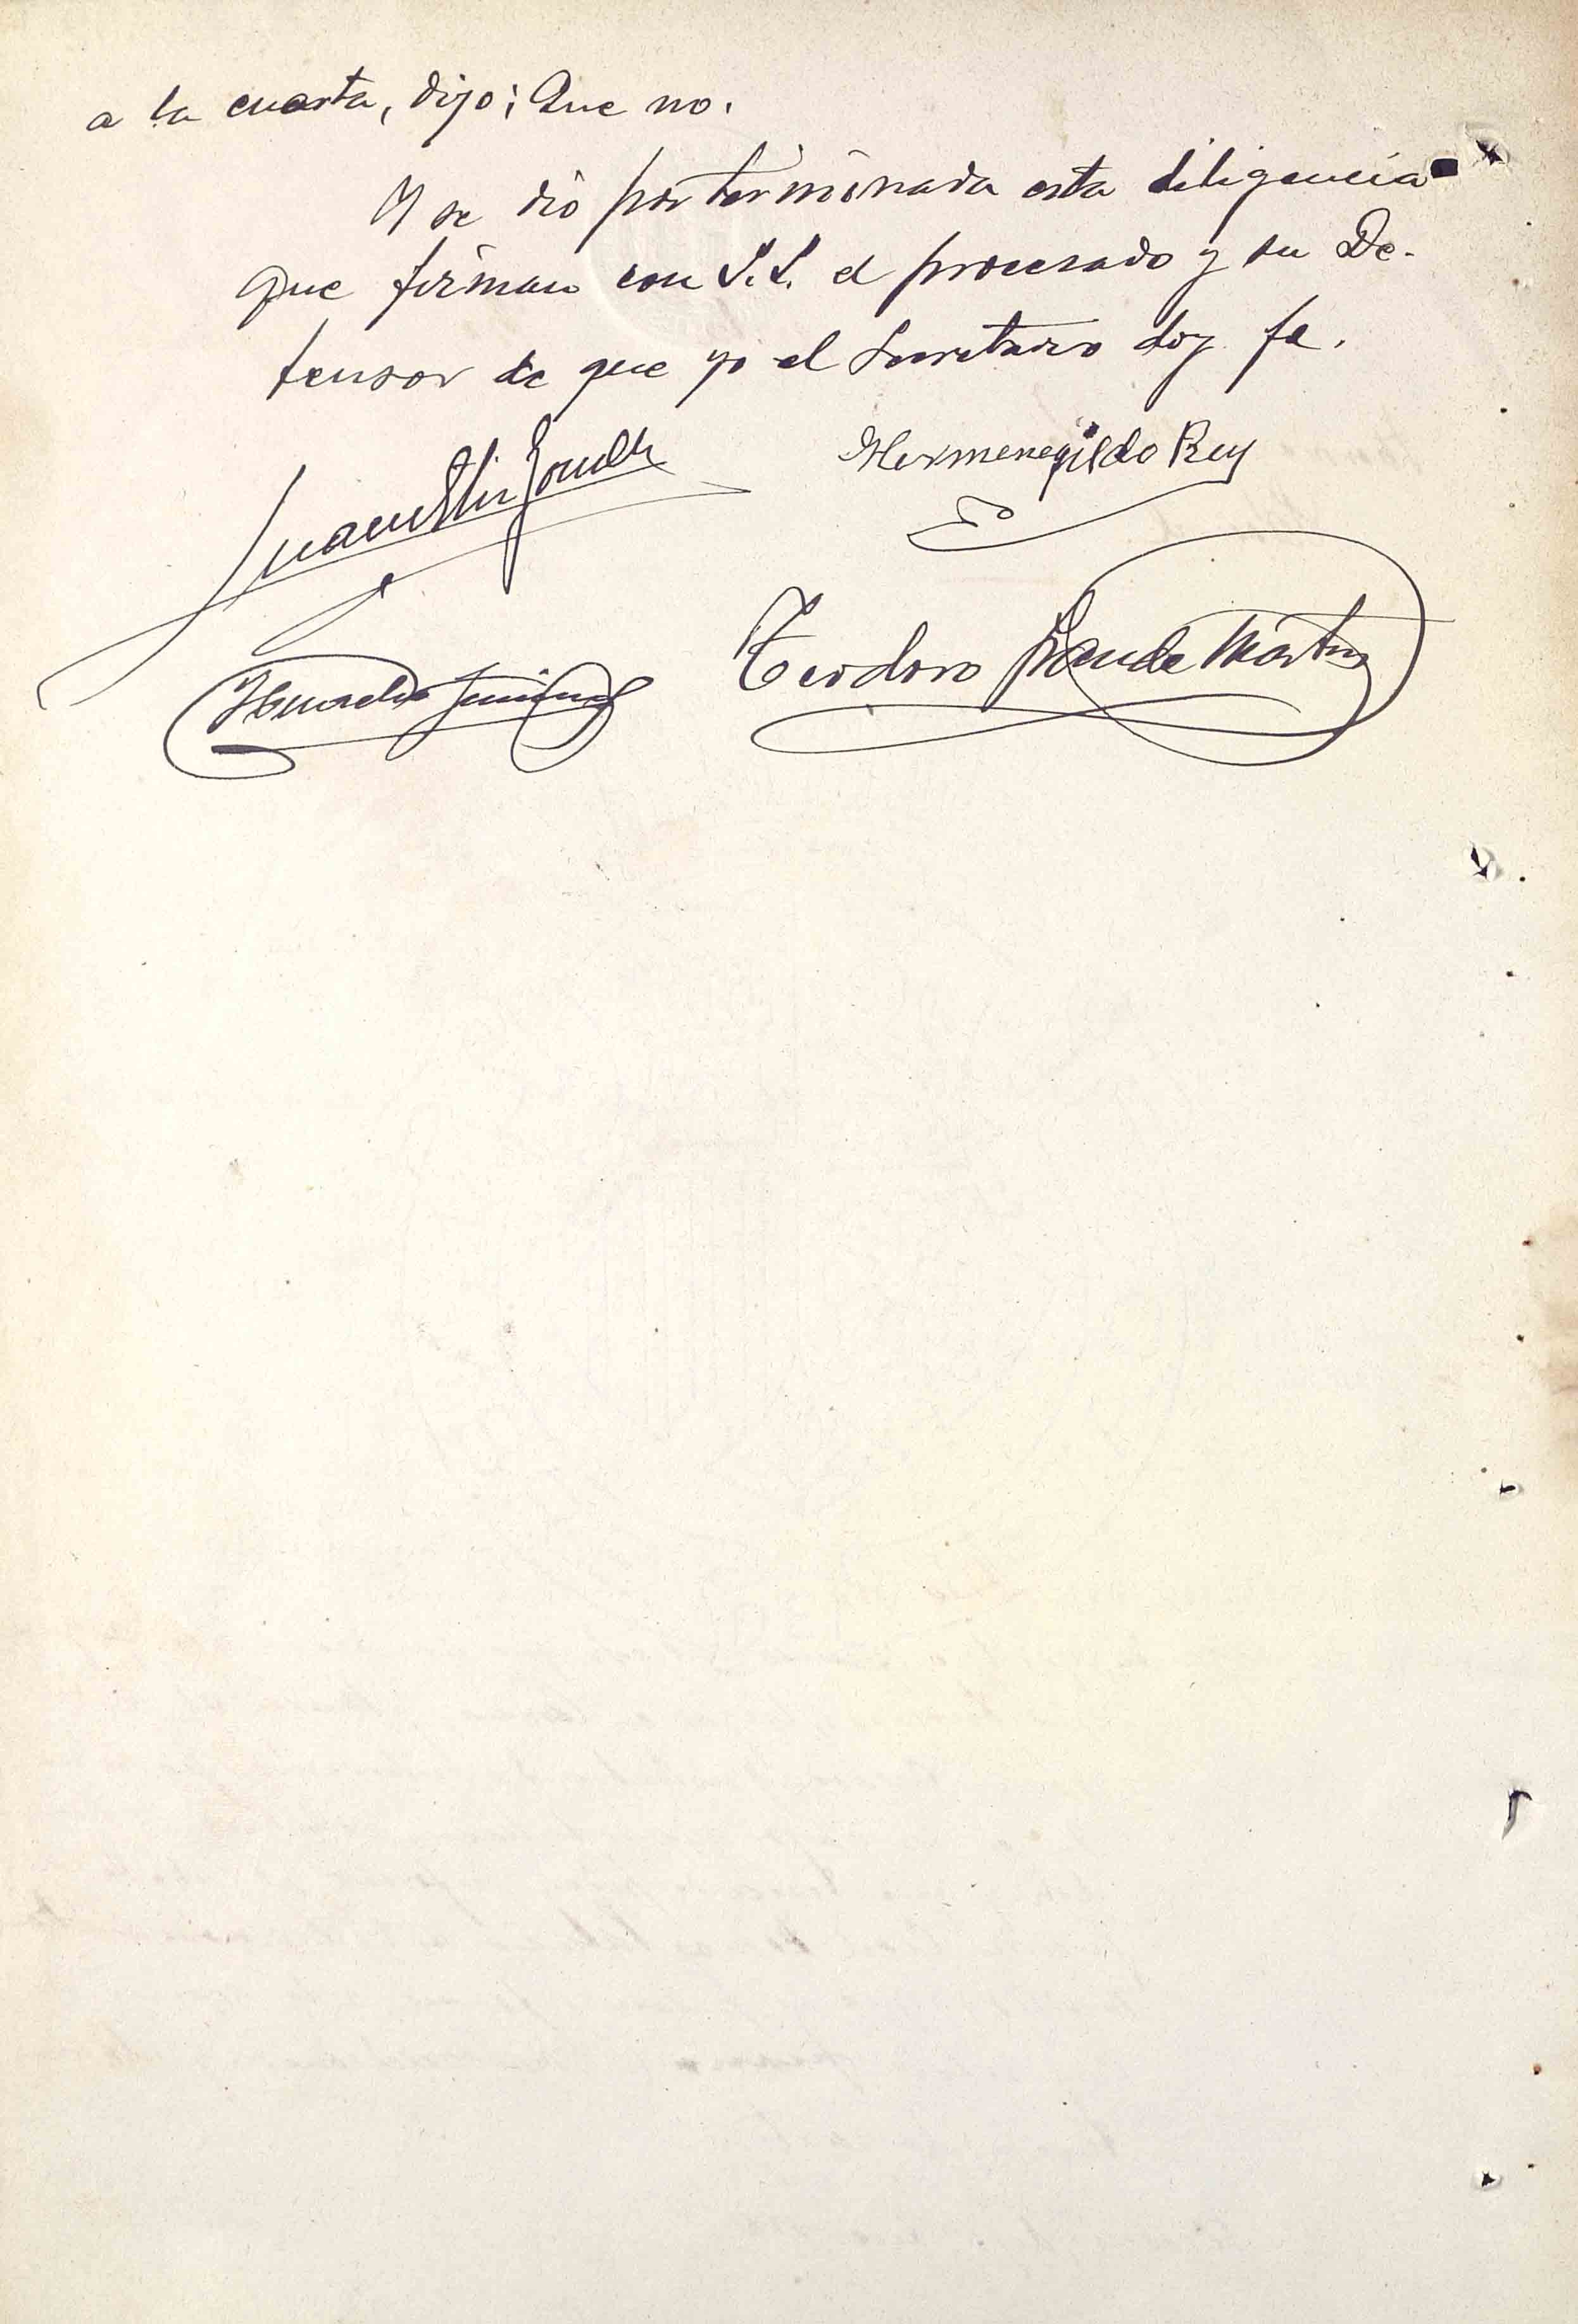 a la cuarta, dijo: Que no.
Y se dió por terminada esta diligencia
que firman con S.S. el procesado y su De-
fensor de que yo el Secretario doy fe.
Hermenegildo Rey
Teodoro Grande Martin